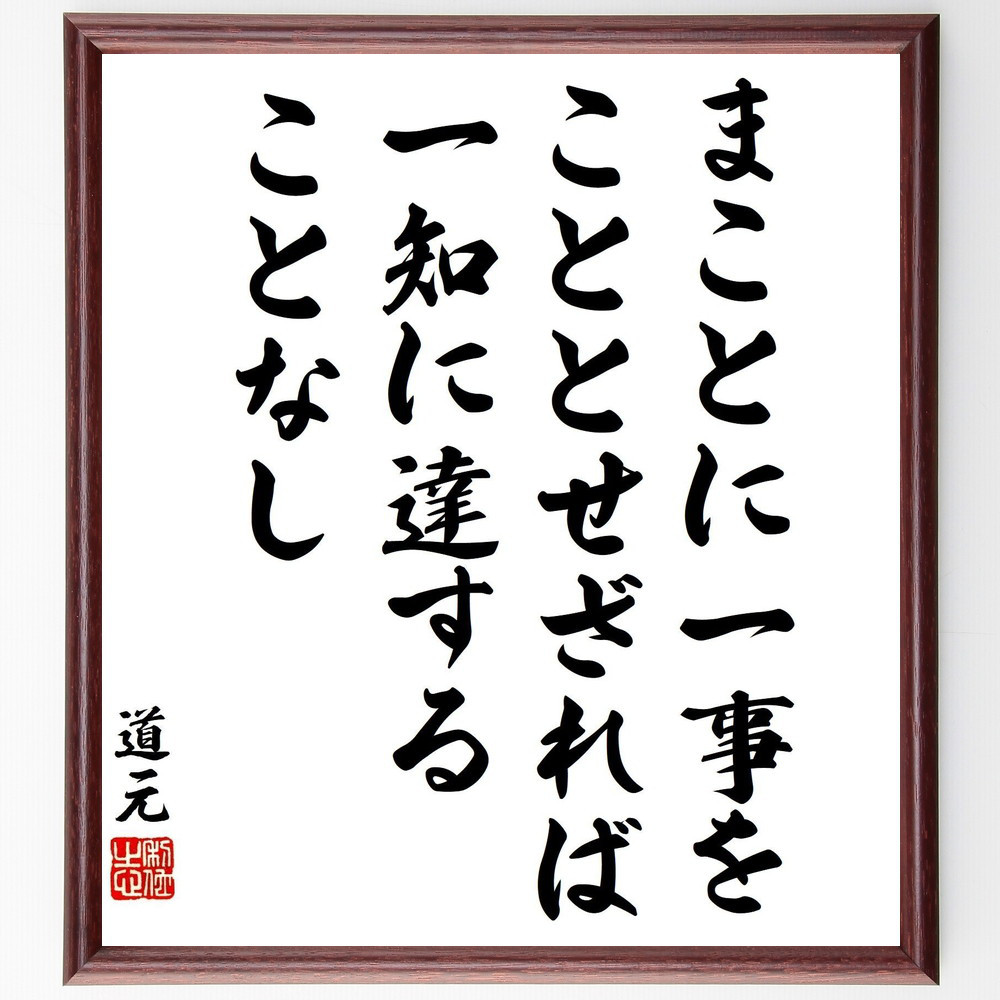 まことに一事を
こととせざれば
一知に達する
ことなし
道元